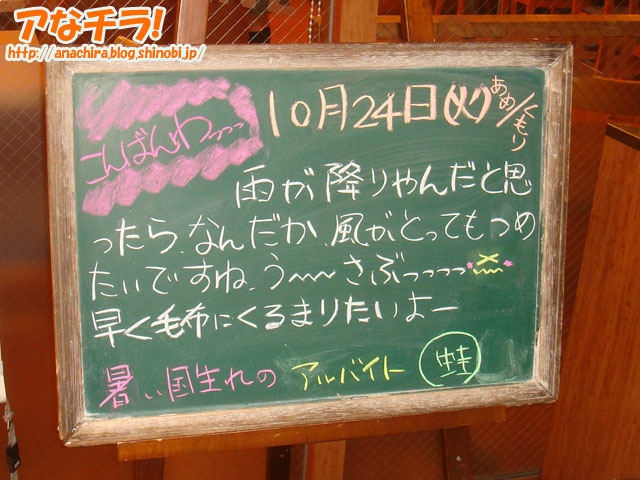 アなチラ!
http://anachira.blog.shinobi.jp/
こんばんわっっ
10月24日(火) あめ/くもり
雨が降りやんだと思
ったら、なんだか、風がとってもつめ
たいですね。う〜〜さぶっっっっ
早く毛布にくるまりたいよー
暑い国生れの アルバイト 蛙